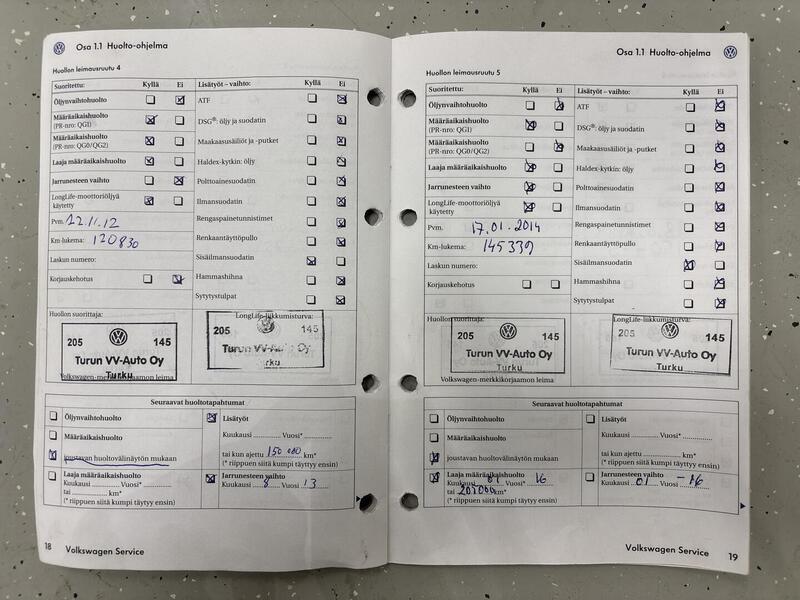 Osa 1.1 Huolto-ohjelma
Huollon leimausruutu 4
Suoritettu: Kyllä Ei
Öljynvaihtohuolto
Määräaikaishuolto
(PR-nro: QG1)
Määräaikaishuolto
(PR-nro: QG0/QG2)
Laaja määräaikaishuolto
Jarrunesteen vaihto
LongLife-moottoriöljyä
käytetty
Pvm. 12.11.12
Km-lukema: 120830
Laskun numero:
Korjauskehotus
Lisätyöt – vaihto: Kyllä Ei
ATF
DSG®: öljy ja suodatin
Maakaasusäiliöt ja -putket
Haldex-kytkin: öljy
Polttoainesuodatin
Ilmansuodatin
Rengaspainetunnistimet
Renkaantäyttöpullo
Sisäilmansuodatin
Hammashihna
Sytytystulpat
Huollon suorittaja:
205 145
Turun VV-Auto Oy
Turku
Volkswagen-merkkikorjaamon leima
LongLife-liikkumisturva:
205 145
Turun VV-Auto Oy
Seuraavat huoltotapahtumat
Öljynvaihtohuolto
Määräaikaishuolto
joustavan huoltovälinäytön mukaan
Laaja määräaikaishuolto
Kuukausi ............ Vuosi* ............
tai ............ km*
(* riippuen siitä kumpi täytyy ensin)
Lisätyöt
Kuukausi ............ Vuosi* ............
tai kun ajettu 150 000 km*
(* riippuen siitä kumpi täytyy ensin)
Jarrunesteen vaihto
Kuukausi 8 Vuosi 13
18 Volkswagen Service
Osa 1.1 Huolto-ohjelma
Huollon leimausruutu 5
Suoritettu: Kyllä Ei
Öljynvaihtohuolto
Määräaikaishuolto
(PR-nro: QG1)
Määräaikaishuolto
(PR-nro: QG0/QG2)
Laaja määräaikaishuolto
Jarrunesteen vaihto
LongLife-moottoriöljyä
käytetty
Pvm. 17.01.2014
Km-lukema: 145339
Laskun numero:
Korjauskehotus
Lisätyöt – vaihto: Kyllä Ei
ATF
DSG®: öljy ja suodatin
Maakaasusäiliöt ja -putket
Haldex-kytkin: öljy
Polttoainesuodatin
Ilmansuodatin
Rengaspainetunnistimet
Renkaantäyttöpullo
Sisäilmansuodatin
Hammashihna
Sytytystulpat
Huollon suorittaja:
205 145
Turun VV-Auto Oy
Turku
Volkswagen-merkkikorjaamon leima
LongLife-liikkumisturva:
205 145
Turun VV-Auto Oy
Turku
Seuraavat huoltotapahtumat
Öljynvaihtohuolto
Määräaikaishuolto
joustavan huoltovälinäytön mukaan
Laaja määräaikaishuolto
Kuukausi 01 Vuosi* 16
tai km*
(* riippuen siitä kumpi täytyy ensin)
Lisätyöt
Kuukausi ............ Vuosi* ............
tai kun ajettu ............ km*
(* riippuen siitä kumpi täytyy ensin)
Jarrunesteen vaihto
Kuukausi 01 Vuosi -16
Volkswagen Service 19